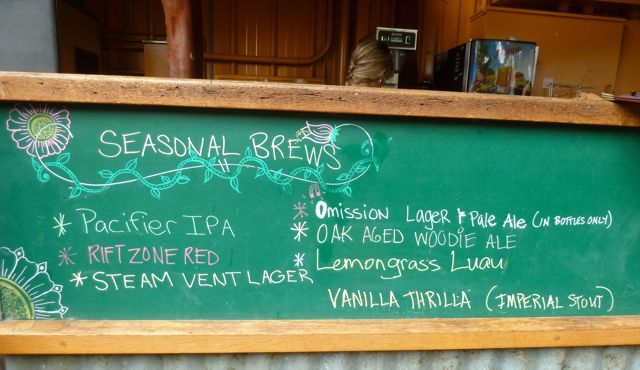 SEASONAL BREWS
* Pacifier IPA
* RIFT ZONE RED
* STEAM VENT LAGER
* Omission Lager & Pale Ale (IN BOTTLES ONLY)
* OAK AGED WOODIE ALE
* Lemongrass Luau
VANILLA THRILLA (IMPERIAL STOUT)